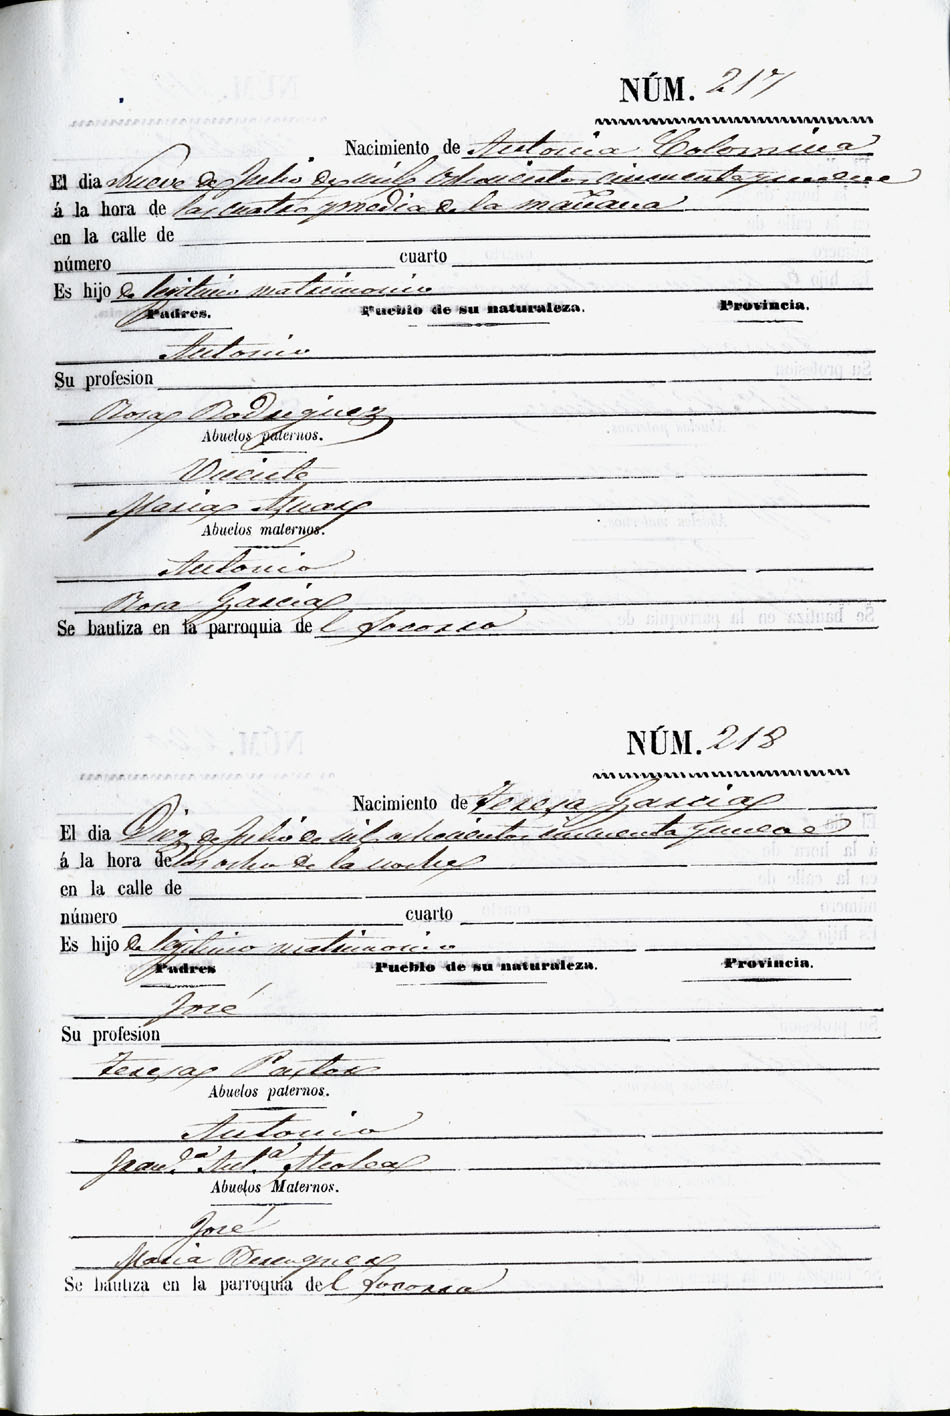 NÚM. 217
Nacimiento de Antonia Colomina
El dia Nueve de Julio de mil ochocientos cincuenta y nueve
á la hora de las cuatro y media de la mañana
en la calle de
número cuarto
Es hijo de legitimo matrimonio
Padres. Pueblo de su naturaleza. Provincia.
Antonio
Su profesion
Rosa Rodriguez
Abuelos paternos.
Vicente
Maria
Abuelos maternos.
Antonio
Rosa Garcia
Se bautiza en la parroquia de l Socorro
NÚM. 218
Nacimiento de Teresa Garcia
El dia Diez de Julio de mil ochocientos cincuenta y nueve
á la hora de las ocho de la noche
en la calle de
número cuarto
Es hijo de legitimo matrimonio
Padres Pueblo de su naturaleza. Provincia.
José
Su profesion
Teresa Pastor
Abuelos paternos.
Antonio
Fran.ca Ant.a
Abuelos Maternos.
José
Maria
Se bautiza en la parroquia de l Socorro